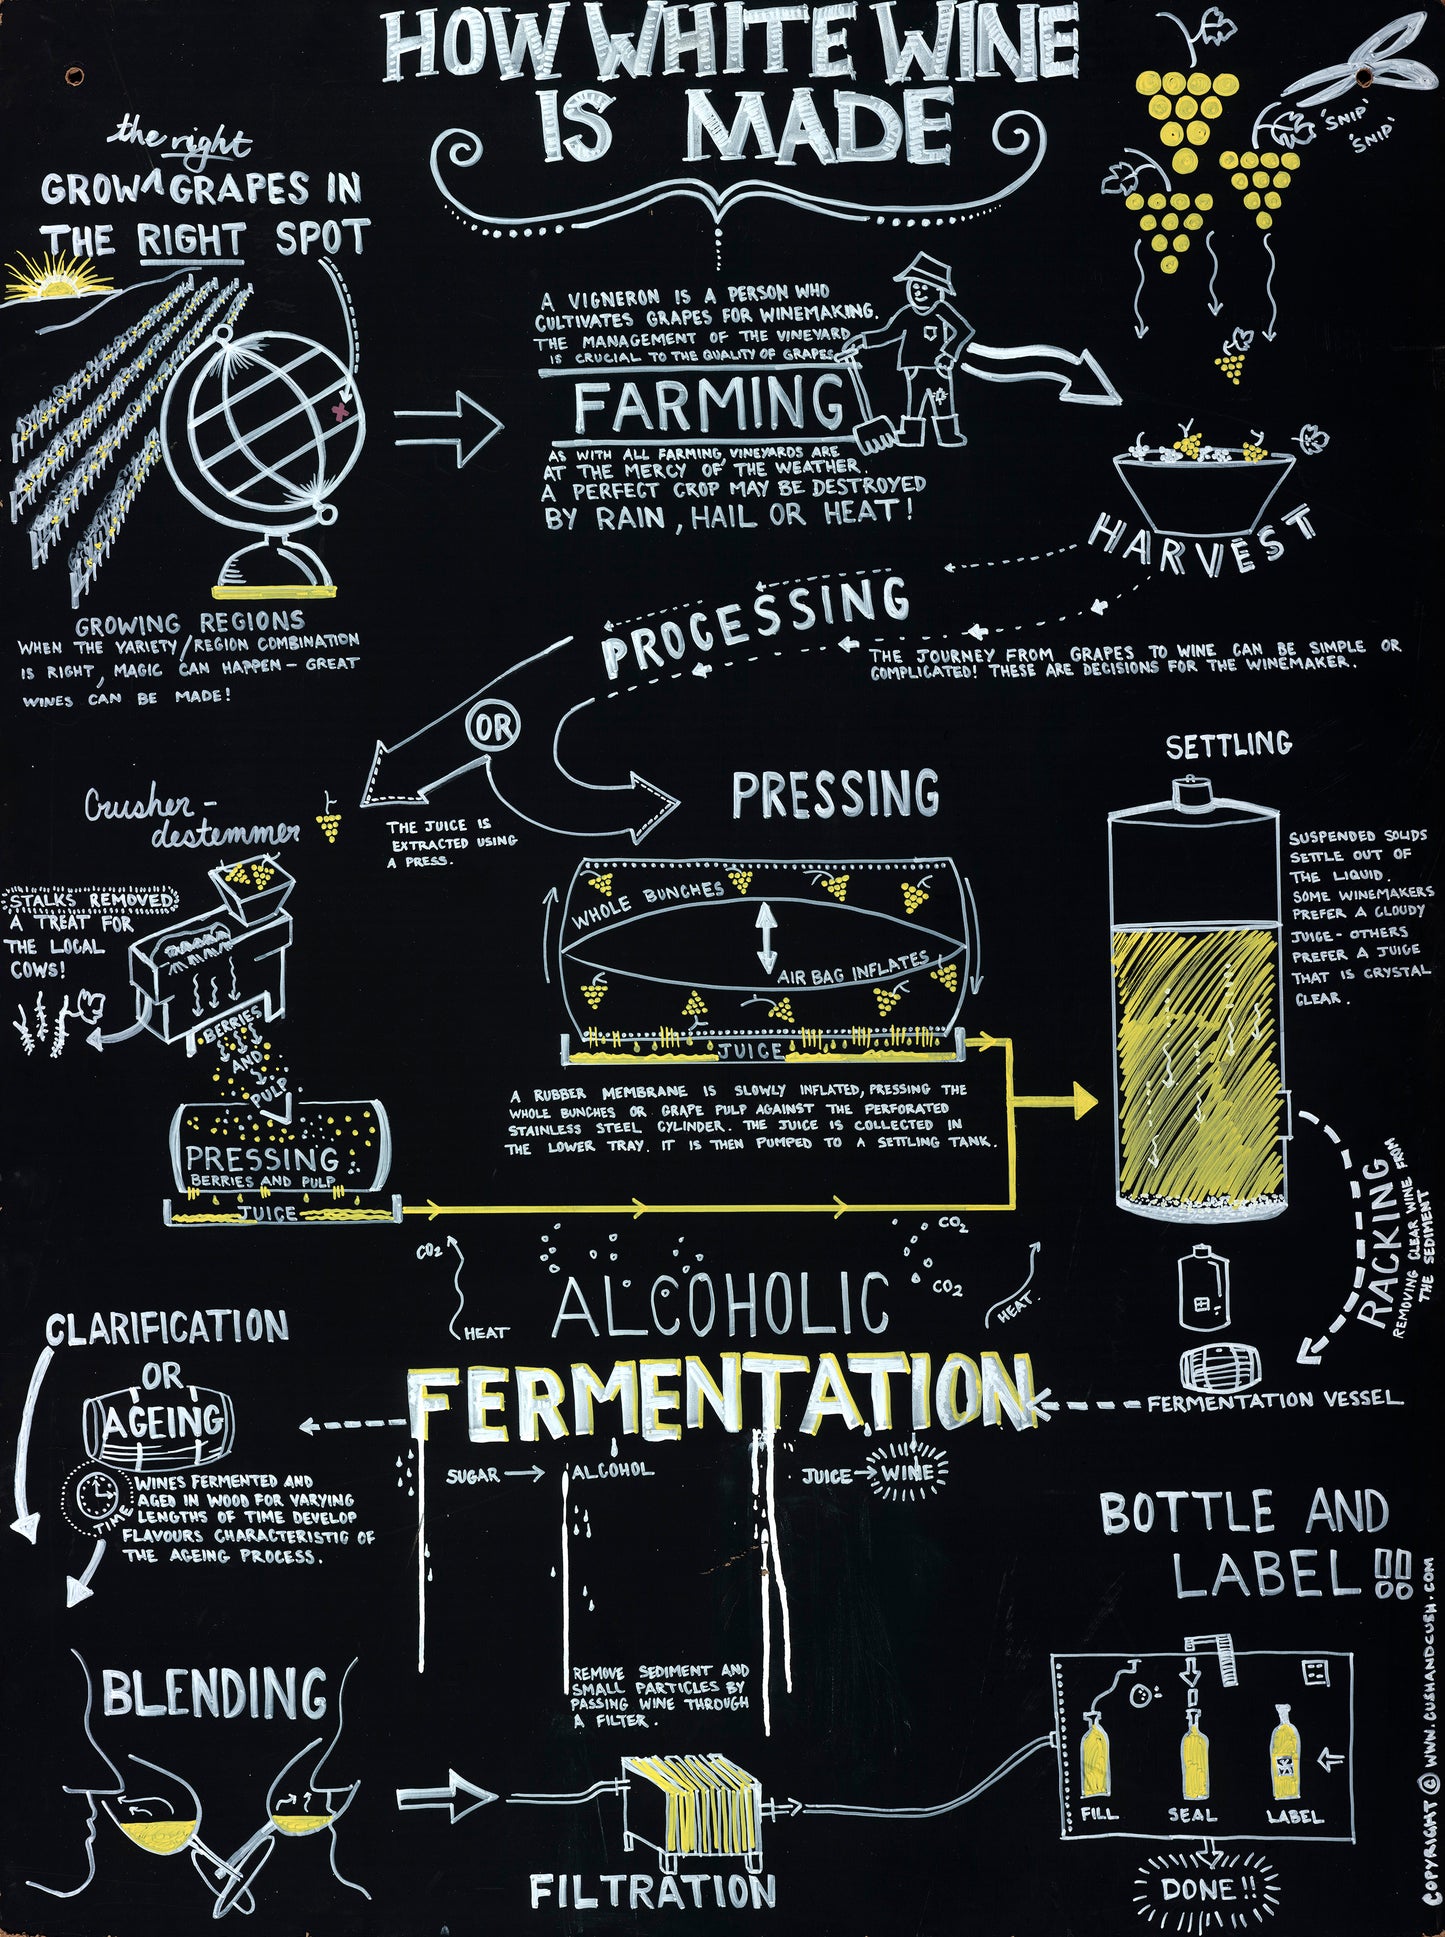 HOW WHITE WINE
IS MADE
the right
GROW ^ GRAPES IN
THE RIGHT SPOT
'SNIP'
'SNIP'
A VIGNERON IS A PERSON WHO
CULTIVATES GRAPES FOR WINEMAKING.
THE MANAGEMENT OF THE VINEYARD
IS CRUCIAL TO THE QUALITY OF GRAPES
FARMING
AS WITH ALL FARMING, VINEYARDS ARE
AT THE MERCY OF THE WEATHER.
A PERFECT CROP MAY BE DESTROYED
BY RAIN, HAIL OR HEAT!
HARVEST
GROWING REGIONS
WHEN THE VARIETY/REGION COMBINATION
IS RIGHT, MAGIC CAN HAPPEN - GREAT
WINES CAN BE MADE!
PROCESSING
THE JOURNEY FROM GRAPES TO WINE CAN BE SIMPLE OR
COMPLICATED! THESE ARE DECISIONS FOR THE WINEMAKER.
OR
Crusher -
destemmer
THE JUICE IS
EXTRACTED USING
A PRESS.
STALKS REMOVED
A TREAT FOR
THE LOCAL
COWS!
BERRIES
AND
PULP
PRESSING
BERRIES AND PULP
JUICE
PRESSING
WHOLE BUNCHES
AIR BAG INFLATES
JUICE
A RUBBER MEMBRANE IS SLOWLY INFLATED, PRESSING THE
WHOLE BUNCHES OR GRAPE PULP AGAINST THE PERFORATED
STAINLESS STEEL CYLINDER. THE JUICE IS COLLECTED IN
THE LOWER TRAY. IT IS THEN PUMPED TO A SETTLING TANK.
SETTLING
SUSPENDED SOLIDS
SETTLE OUT OF
THE LIQUID.
SOME WINEMAKERS
PREFER A CLOUDY
JUICE - OTHERS
PREFER A JUICE
THAT IS CRYSTAL
CLEAR.
RACKING
REMOVING CLEAR WINE FROM
THE SEDIMENT
FERMENTATION VESSEL
CO2
HEAT
CO2
CO2
HEAT.
ALCOHOLIC
FERMENTATION
SUGAR → ALCOHOL
JUICE → WINE
CLARIFICATION
OR
AGEING
TIME
WINES FERMENTED AND
AGED IN WOOD FOR VARYING
LENGTHS OF TIME DEVELOP
FLAVOURS CHARACTERISTIC OF
THE AGEING PROCESS.
BLENDING
REMOVE SEDIMENT AND
SMALL PARTICLES BY
PASSING WINE THROUGH
A FILTER.
FILTRATION
BOTTLE AND
LABEL!!
FILL
SEAL
LABEL
DONE!!
COPYRIGHT © WWW.CUSHANDCUSH.COM